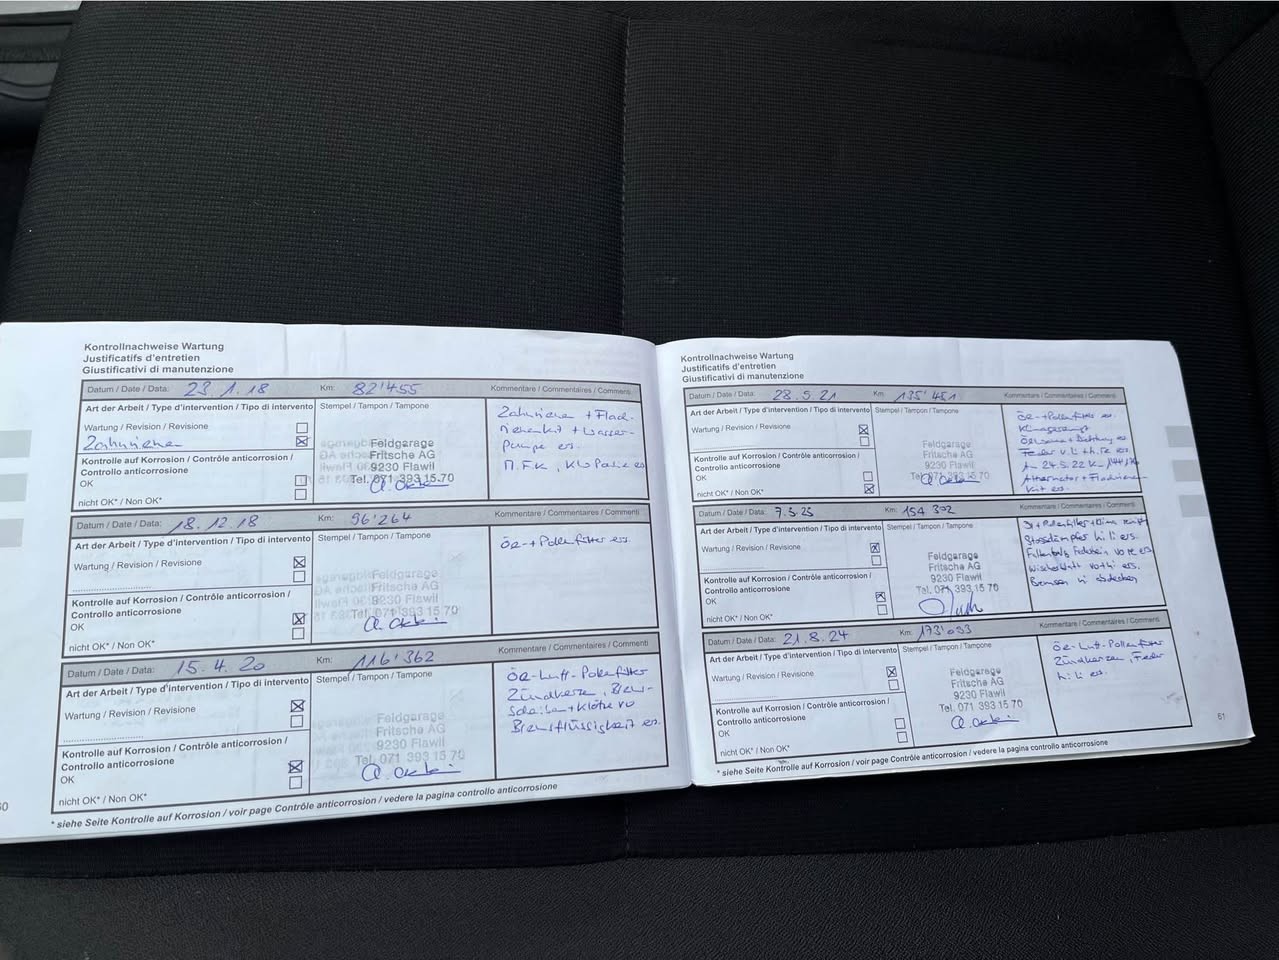 Kontrollnachweise Wartung
Justificatifs d'entretien
Giustificativi di manutenzione
Datum / Date / Data: 23.1.18 Km: 82'455 Kommentare / Commentaires / Commenti
Art der Arbeit / Type d'intervention / Tipo di intervento
Stempel / Tampon / Tampone
Wartung / Revision / Revisione
Zahnriemen
Kontrolle auf Korrosion / Contrôle anticorrosion /
Controllo anticorrosione
OK
nicht OK* / Non OK*
Feldgarage
Fritsche AG
9230 Flawil
Tel. 071 393 15 70
Zahnriemen + Flach-
riemenkit + Wasser-
pumpe ers.
M.F.K,
Datum / Date / Data: 18.12.18 Km: 96'264 Kommentare / Commentaires / Commenti
Art der Arbeit / Type d'intervention / Tipo di intervento
Stempel / Tampon / Tampone
Wartung / Revision / Revisione
Kontrolle auf Korrosion / Contrôle anticorrosion /
Controllo anticorrosione
OK
nicht OK* / Non OK*
Feldgarage
Fritsche AG
9230 Flawil
Tel. 071 393 15 70
Öl- + Pollenfilter ers.
Datum / Date / Data: 15.4.20 Km: 116'362 Kommentare / Commentaires / Commenti
Art der Arbeit / Type d'intervention / Tipo di intervento
Stempel / Tampon / Tampone
Wartung / Revision / Revisione
Kontrolle auf Korrosion / Contrôle anticorrosion /
Controllo anticorrosione
OK
nicht OK* / Non OK*
Feldgarage
Fritsche AG
9230 Flawil
Tel. 071 393 15 70
Öl-Luft-Pollenfilter
Zündkerzen, Brem-
Scheiben + Klötze vo
Bremsflüssigkeit ers.
* siehe Seite Kontrolle auf Korrosion / voir page Contrôle anticorrosion / vedere la pagina controllo anticorrosione
60
Kontrollnachweise Wartung
Justificatifs d'entretien
Giustificativi di manutenzione
Datum / Date / Data: 28.5.21 Km 135'451 Kommentare / Commentaires / Commenti
Art der Arbeit / Type d'intervention / Tipo di intervento
Stempel / Tampon / Tampone
Wartung / Revision / Revisione
Kontrolle auf Korrosion / Contrôle anticorrosion /
Controllo anticorrosione
OK
nicht OK* / Non OK*
Feldgarage
Fritsche AG
9230 Flawil
Tel. 071 393 15 70
Öl- + Pollenfilter ers.
Ölwanne + Dichtung ers
Feder v.li + h.re ers.
Am 24.5.22
Alternator + Flachriemen-
kit ers.
Datum / Date / Data: Km: 154 302 Kommentare / Commentaires / Commenti
Art der Arbeit / Type d'intervention / Tipo di intervento
Stempel / Tampon / Tampone
Wartung / Revision / Revisione
Kontrolle auf Korrosion / Contrôle anticorrosion /
Controllo anticorrosione
OK
nicht OK* / Non OK*
Feldgarage
Fritsche AG
9230 Flawil
Tel. 071 393 15 70
Stossdämpfer hi li ers.
vo re ers
Wischerblatt vo + hi ers.
Bremsen hi
Datum / Date / Data: 21.8.24 Km: 173'033 Kommentare / Commentaires / Commenti
Art der Arbeit / Type d'intervention / Tipo di intervento
Stempel / Tampon / Tampone
Wartung / Revision / Revisione
Kontrolle auf Korrosion / Contrôle anticorrosion /
Controllo anticorrosione
OK
nicht OK* / Non OK*
Feldgarage
Fritsche AG
9230 Flawil
Tel. 071 393 15 70
Öl-Luft-Pollenfilter
Zündkerzen, Feder
hi li ers.
* siehe Seite Kontrolle auf Korrosion / voir page Contrôle anticorrosion / vedere la pagina controllo anticorrosione
61